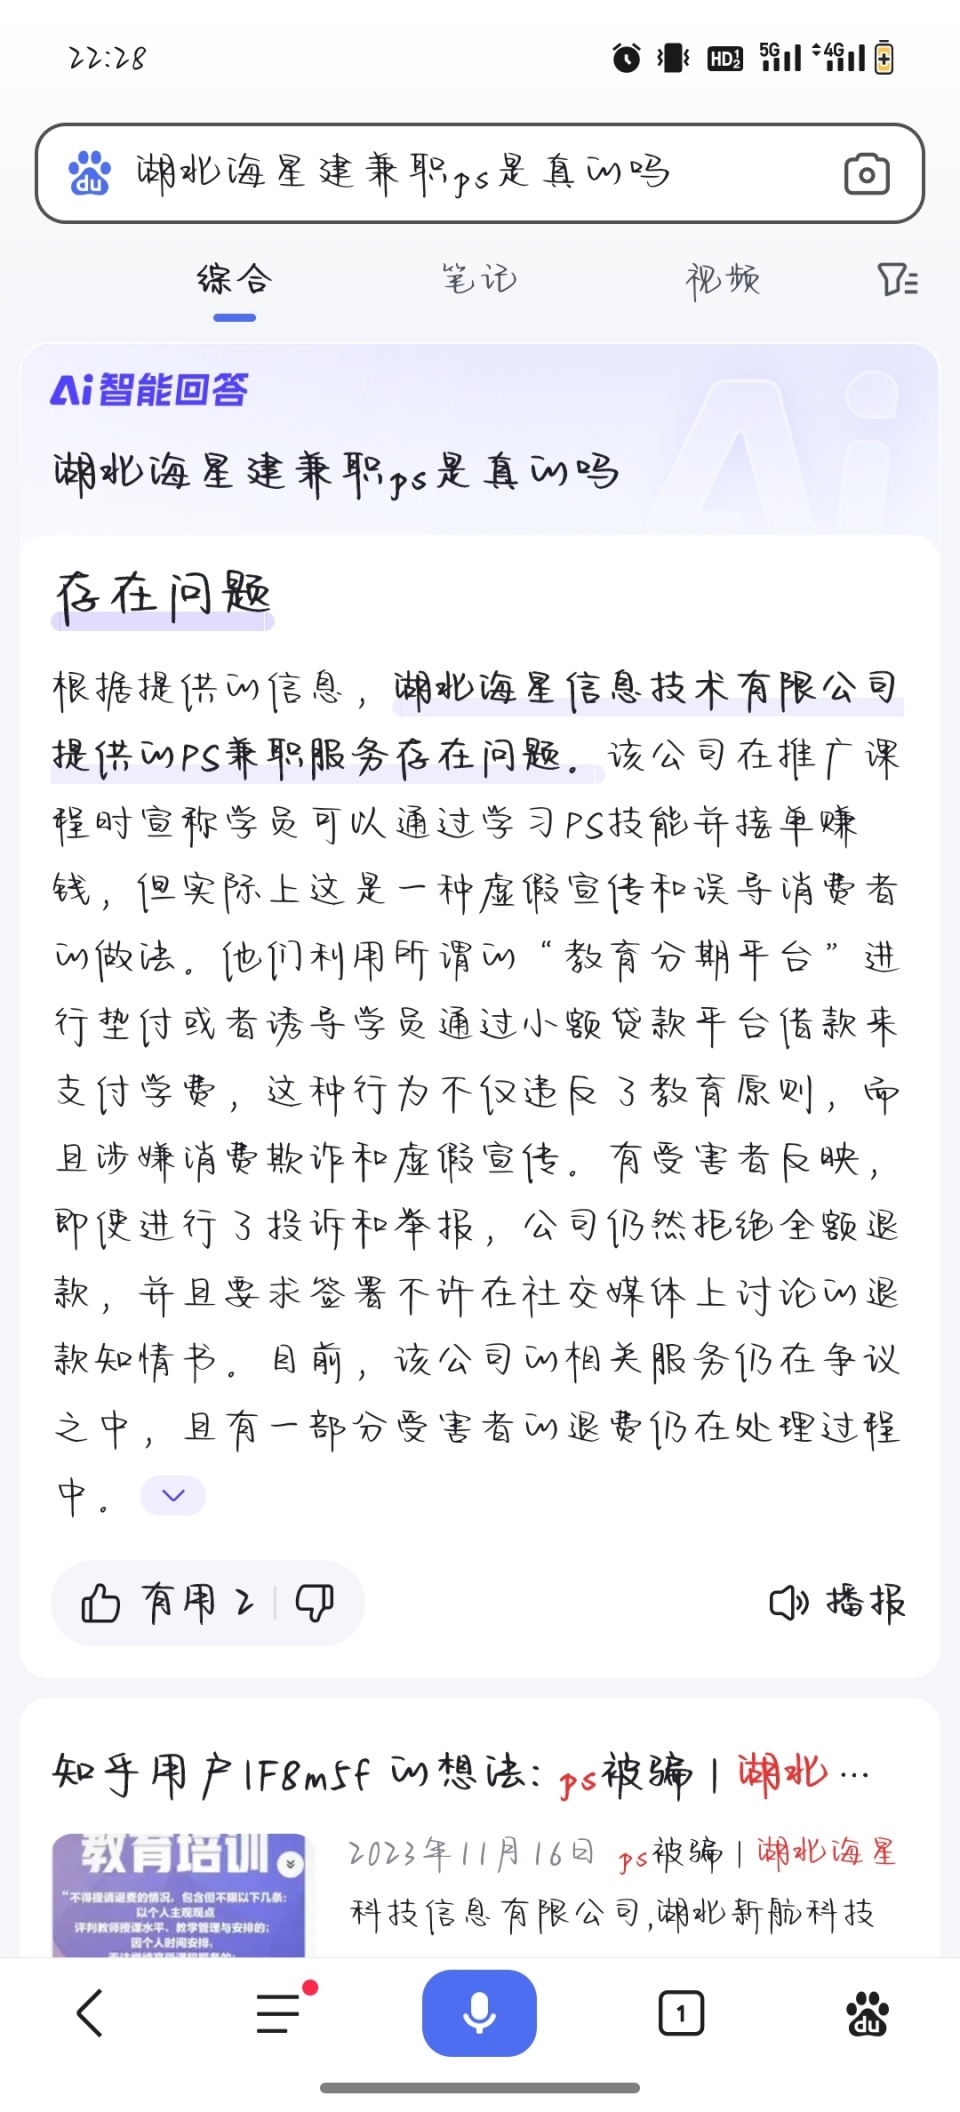 22:28
HD 1 2 5G 4G
du 湖北海星建兼职ps是真的吗
综合 笔记 视频
Ai智能回答
湖北海星建兼职ps是真的吗
存在问题
根据提供的信息，湖北海星信息技术有限公司
提供的PS兼职服务存在问题。该公司在推广课
程时宣称学员可以通过学习PS技能并接单赚
钱，但实际上这是一种虚假宣传和误导消费者
的做法。他们利用所谓的“教育分期平台”进
行垫付或者诱导学员通过小额贷款平台借款来
支付学费，这种行为不仅违反了教育原则，而
且涉嫌消费欺诈和虚假宣传。有受害者反映，
即使进行了投诉和举报，公司仍然拒绝全额退
款，并且要求签署不许在社交媒体上讨论的退
款知情书。目前，该公司的相关服务仍在争议
之中，且有一部分受害者的退费仍在处理过程
中。
有用 2 播报
知乎用户1F8m5f 的想法：ps被骗 | 湖北…
教育培训
“不得提请退费的情况，包含但不限以下几条：
以个人主观观点
评判教师授课水平、教学管理与安排的；
因个人时间安排，
2023年11月16日 ps被骗 | 湖北海星
科技信息有限公司,湖北新航科技
1 du